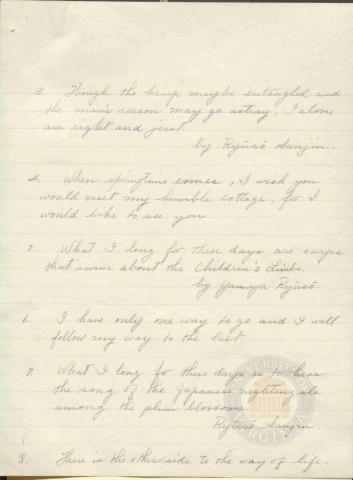 3. Though the hemp maybe entangled and
the man's reason may go astray, I alone
am right and just
by Ryūsō Sanjin.
4. When springtime comes, I wish you
would visit my humble cottage, for I
would like to see you.
5. What I long for these days are carps
that swim about the Children's limbs.
by Yamaya Ryūsō.
6. I have only one way to go and I will
follow my way to the last.
7. What I long for these days is to hear
the song of the Japanese nightingale
among the plum blossoms.
Ryūsō Sanjin
8. There is the other side to the way of life.